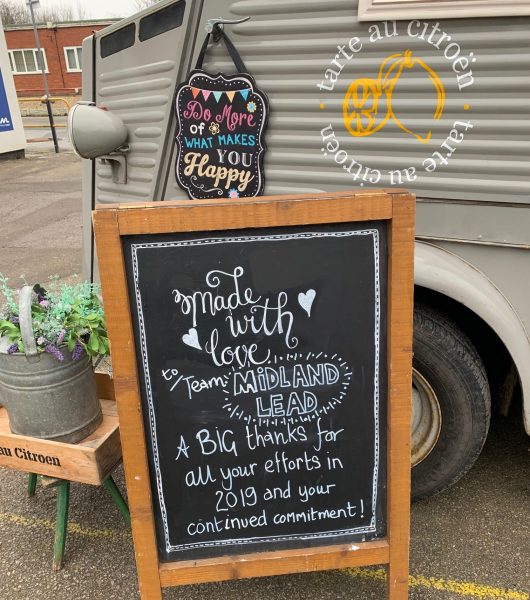 tarte au citroën
tarte au citroën
Do More
of
WHAT MAKES
YOU
Happy
Made
with
love
to/Team: MIDLAND
LEAD
A BIG thanks for
all your efforts in
2019 and your
continued commitment!
au Citroen